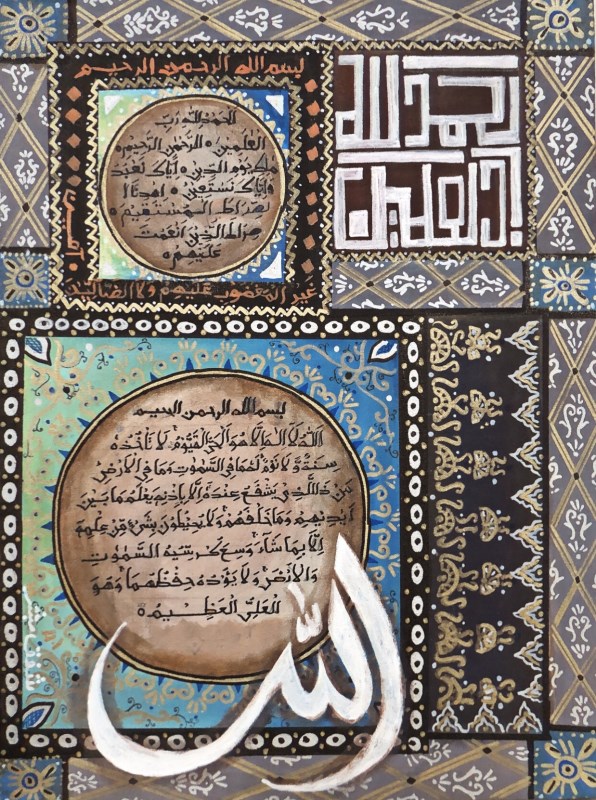 بسم الله الرحمن الرحيم
الحمد لله رب
العلمين ه الرحمن الرحيم ه
ملك يوم الدين ه اياك نعبد
واياك نستعين ه اهدنا ا
لصراط المستقيم ه
صراط الذين انعمت
عليهم ه
غير المغضوب عليهم ولا الضالين
الحمد لله
رب العلمين
بسم الله الرحمن الرحيم
الله لا اله الا هو الحي القيوم لا تأخذه
سنة ولا نوم له ما في السموت وما في الارض
من ذا الذي يشفع عنده الا باذنه يعلم ما بين
ايديهم وما خلفهم ولا يحيطون بشيء من علمه
الا بما شاء وسع كرسيه السموت
والارض ولا يؤده حفظهما وهو
العلي العظيم ه
الله